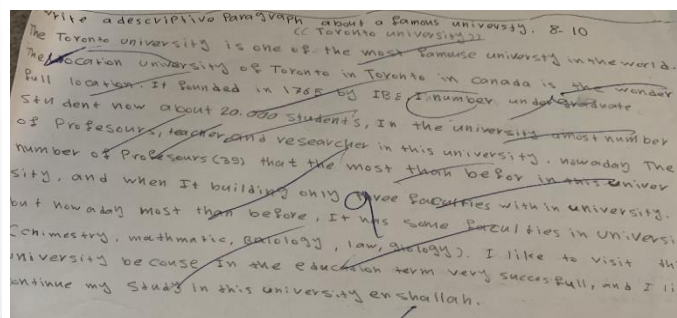 write a descriptive Paragraph about a famous universty. 8-10
<< Toronto university >>
The Toronto university is one of the most famuse universty in the world.
The location university of Toronto in Toronto in Canada is the wonder
full location. It founded in by I number undergraduate
student now about 20.000 student's, In the university amost number
of Profesours, teacher and researcher in this university. nowaday The
number of Profesours (39) that the most than befor in this univer
sity, and when It building only three faculties with in university.
but now aday most than before, It has some faculties in universi
(chimestry, mathmatic, , law, ). I like to visit th
university becouse In the education term very succesfull, and I li
ontinue my study in this university en shallah.